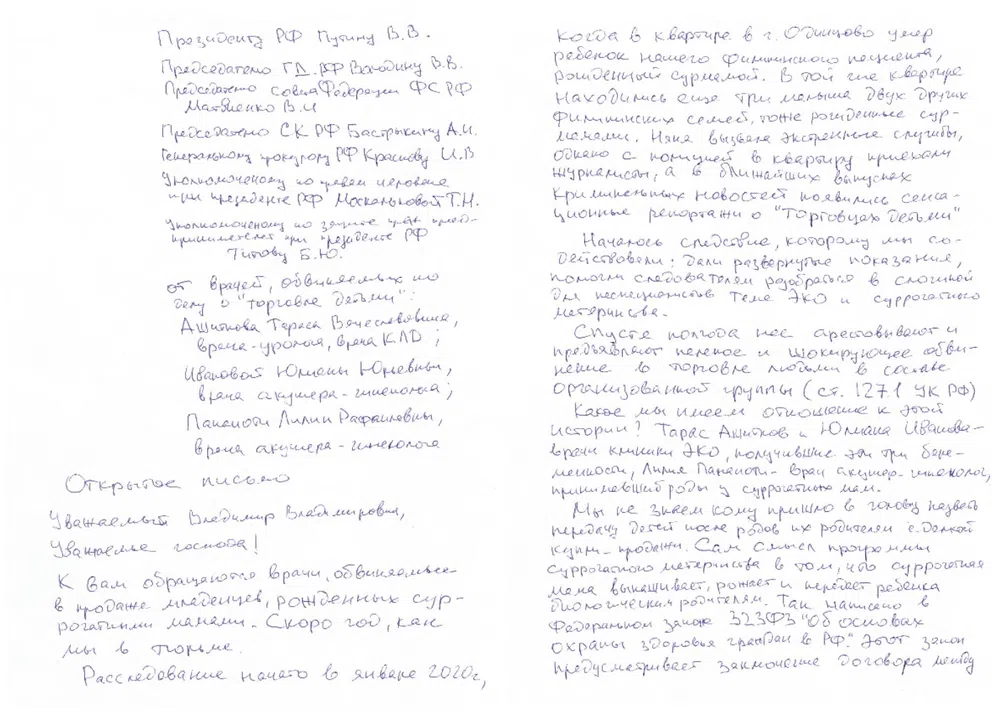 Президенту РФ Путину В.В.
Председателю ГД РФ Володину В.В.
Председателю Совета Федерации ФС РФ
Матвиенко В.И
Председателю СК РФ Бастрыкину А.И.
Генеральному прокурору РФ Краснову И.В
Уполномоченному по правам человека
при президенте РФ Москальковой Т.Н.
Уполномоченному по защите прав пред-
принимателей при президенте РФ
Титову Б.Ю.
от врачей, обвиняемых по
делу о "торговле детьми":
Ашиткова Тараса Вячеславовича,
врача-уролога, врача КЛД;
Ивановой Юлианы Юрьевны,
врача акушера-гинеколога;
Панаиоти Лилии Рафаиловны,
врача акушера-гинеколога
Открытое письмо
Уважаемый Владимир Владимирович,
Уважаемые господа!
К Вам обращаются врачи, обвиняемые
в продаже младенцев, рожденных сур-
рогатными мамами. Скоро год, как
мы в тюрьме.
Расследование начато в январе 2020г.,
когда в квартире в г. Одинцово умер
ребенок нашего филиппинского пациента,
рожденный сурмамой. В той же квартире
находились еще три малыша двух других
филиппинских семей, тоже рожденные сур-
мамами. Няня вызвала экстренные службы,
однако с полицией в квартиру приехали
журналисты, а в ближайших выпусках
криминальных новостей появились сенса-
ционные репортажи о "Торговцах детьми"
Началось следствие, которому мы со-
действовали: дали развернутые показания,
помогли следователям разобраться в сложной
для неспециалистов теме ЭКО и суррогатного
материнства.
Спустя полгода нас арестовывают и
предъявляют нелепое и шокирующее обви-
нение в торговле людьми в составе
организованной группы (ст. 127.1 УК РФ)
Какое мы имеем отношение к этой
истории? Тарас Ашитков и Юлиана Иванова-
врачи клиники ЭКО, получившие эти три бере-
менности, Лилия Панаиоти - врач акушер-гинеколог,
принимавший роды у суррогатных мам.
Мы не знаем кому пришло в голову назвать
передачу детей после родов их родителям сделкой
купли-продажи. Сам смысл программы
суррогатного материнства в том, что суррогатная
мама вынашивает, рожает и передает ребенка
биологическим родителям. Так написано в
Федеральном законе 323ФЗ "Об основах
охраны здоровья граждан в РФ". Этот закон
предусматривает заключение договора между